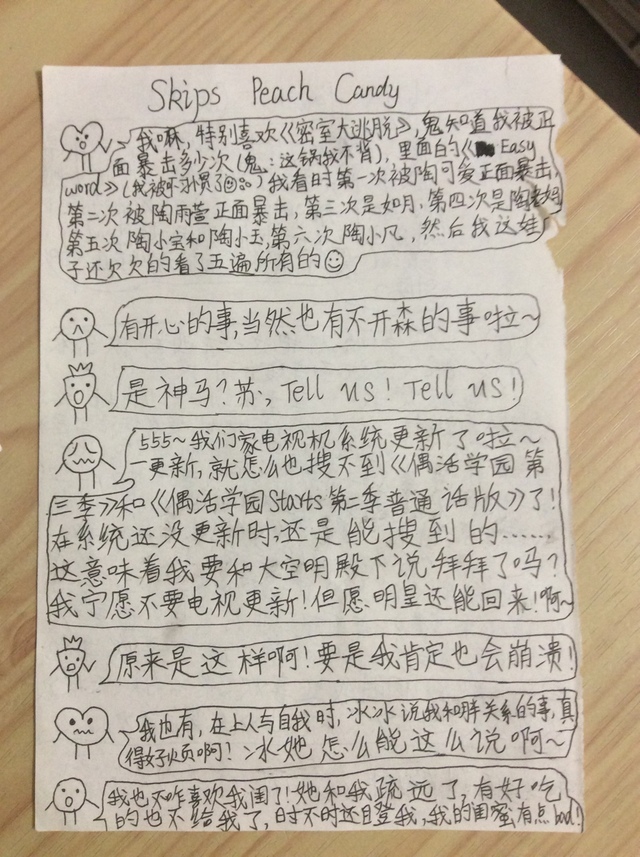 Skips Peach Candy
我嘛,特别喜欢《密室大逃脱》,鬼知道我被正
面暴击多少次(鬼:这锅我不背),里面白的《Easy
word》(我被吓习惯了)我看时第一次被陶可爱正面暴击,
第二次被陶雨萱正面暴击,第三次是如月,第四次是陶
第五次陶小宝和陶小玉,第六次陶小凡,然后我这娃
子还欠欠的看了五遍所有的
有开心的事,当然也有不开森的事啦~
是神马?苏,Tell us!Tell us!
555~我们家电视机系统更新了啦~
一更新,就怎么也搜不到《偶活学园第
三季》和《偶活学园Starts第二季普通话版》了!
在系统还没更新时,还是能搜到的……
这意味着我要和大空明殿下说拜拜了吗?
我宁愿不要电视更新!但愿明皇还能回来!啊~
原来是这样啊!要是我肯定也会崩溃!
我也有,在上人与自我时,冰冰说我和胖关系的事,真
得好火页啊!冰她怎么能这么说啊~
我也不咋喜欢我闺了!她和我疏远了,有好吃
的也不给我了,时不时还目登我,我的闺蜜有点bad!